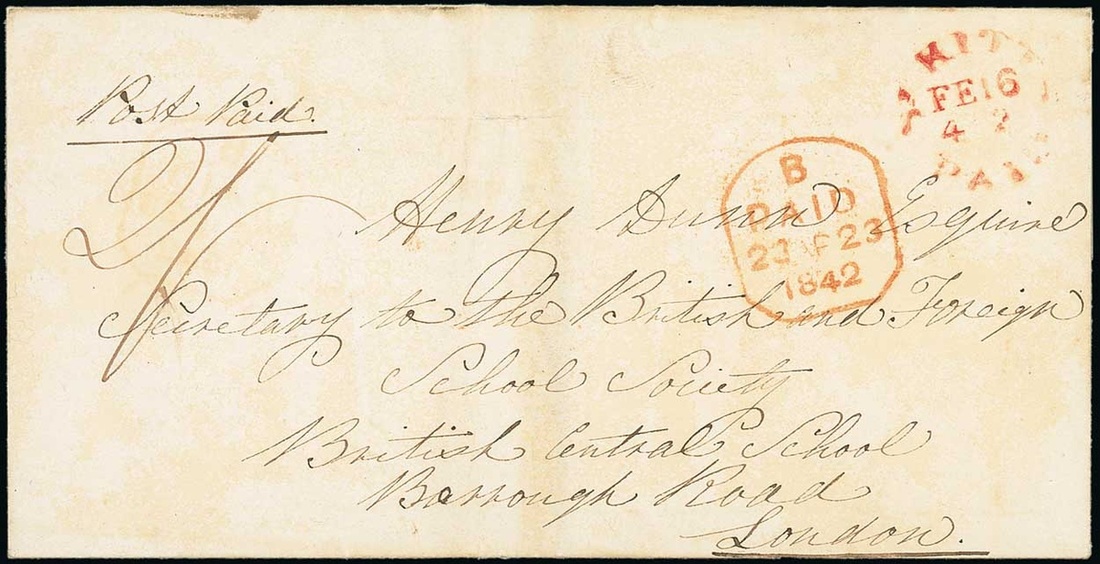 Post Paid.
2/
KITTS
FE 16
42
PAID
B
PAID
23 AP 23
1842
Henry Dunn Esquire
Secretary to the British and Foreign
School Society
British Central School
Borrough Road
London.